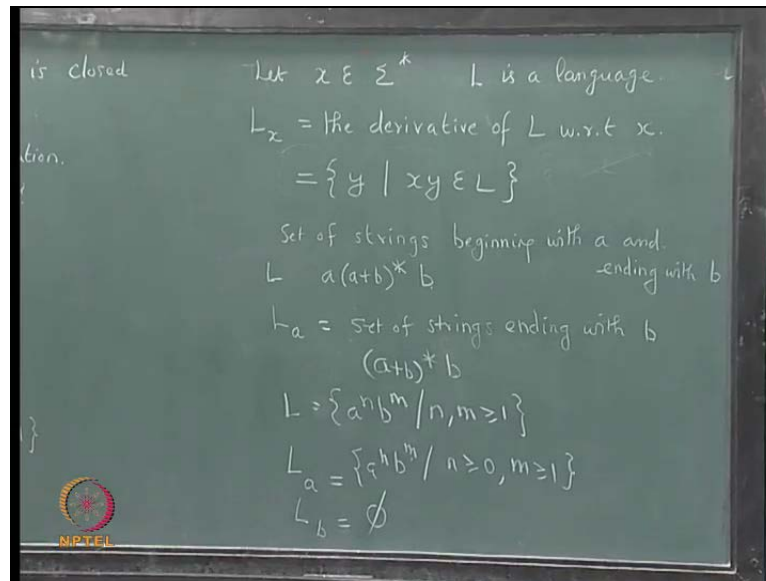 is closed
tion.
}
Let x ε Σ* L is a language.
L_x = the derivative of L w.r.t x.
= { y | xy ε L }
Set of strings beginning with a and
ending with b
L a(a+b)* b
L_a = set of strings ending with b
(a+b)* b
L = {a^n b^m / n, m ≥ 1}
L_a = {a^n b^m / n ≥ 0, m ≥ 1}
L_b = ∅
NPTEL